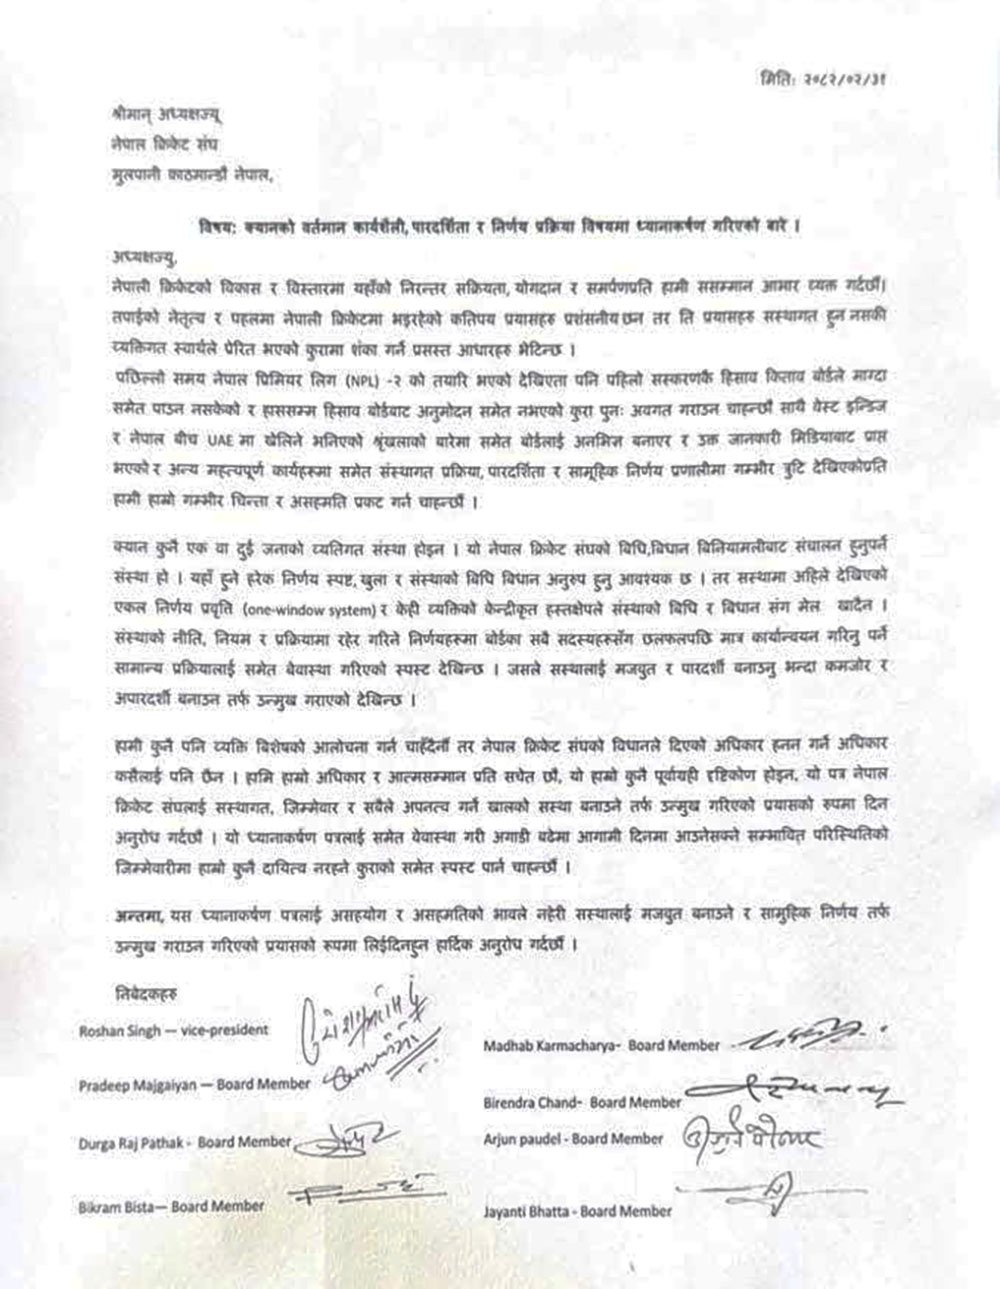 मिति: २०८२/०२/३१
श्रीमान् अध्यक्षज्यू
नेपाल क्रिकेट संघ
मुलपानी काठमान्डौ नेपाल,
विषय: क्यानको वर्तमान कार्यशैली, पारदर्शिता र निर्णय प्रक्रिया विषयमा ध्यानाकर्षण गरिएको बारे ।
अध्यक्षज्यु,
नेपाली क्रिकेटको विकास र विस्तारमा यहाँको निरन्तर सक्रियता, योगदान र समर्पणप्रति हामी ससम्मान आभार व्यक्त गर्दछौं।
तपाईको नेतृत्व र पहलमा नेपाली क्रिकेटमा भइरहेको कतिपय प्रयासहरु प्रशंसनीय छन तर ति प्रयासहरु सस्थागत हुन नसकी
व्यक्तिगत स्वार्थले प्रेरित भएको कुरामा शंका गर्ने प्रसस्त आधारहरु भेटिन्छ ।
पछिल्लो समय नेपाल प्रिमियर लिग (NPL) -२ को तयारि भएको देखिएता पनि पहिलो सस्करणकै हिसाव किताव बोर्डले माग्दा
समेत पाउन नसकेको र हाससम्म हिसाव बोर्डबाट अनुमोदन समेत नभएको कुरा पुनः अवगत गराउन चाहन्छौ साथै वेस्ट इन्डिज
र नेपाल बीच UAE मा खेलिने भनिएको श्रृंखलाको बारेमा समेत बोर्डलाई अनभिज्ञ बनाएर र उक्त जानकारी मिडियाबाट प्राप्त
भएको र अन्य महत्त्वपूर्ण कार्यहरुमा समेत संस्थागत प्रक्रिया, पारदर्शिता र सामूहिक निर्णय प्रणालीमा गम्भीर त्रुटि देखिएकोप्रति
हामी हाम्रो गम्भीर चिन्ता र असहमति प्रकट गर्न चाहन्छौं ।
क्यान कुनै एक वा दुई जनाको व्यतिगत संस्था होइन । यो नेपाल क्रिकेट संघको विधि,विधान विनियामलीबाट संचालन हुनुपर्ने
संस्था हो । यहाँ हुने हरेक निर्णय स्पष्ट, खुला र संस्थाको विधि विधान अनुरुप हुनु आवश्यक छ । तर सस्थामा अहिले देखिएको
एकल निर्णय प्रवृति (one-window system) र केही व्यक्तिको केन्द्रीकृत हस्तक्षेपले संस्थाको विधि र विधान संग मेल खादैन ।
संस्थाको नीति, नियम र प्रक्रियामा रहेर गरिने निर्णयहरुमा बोर्डका सबै सदस्यहरुसँग छलफलपछि मात्र कार्यान्वयन गरिनु पर्ने
सामान्य प्रक्रियालाई समेत वेवास्था गरिएको स्पस्ट देखिन्छ । जसले सस्थालाई मजवुत र पारदर्शी बनाउनु भन्दा कमजोर र
अपारदर्शी बनाउन तर्फ उन्मुख गराएको देखिन्छ ।
हामी कुनै पनि व्यक्ति विशेषको आलोचना गर्न चाहँदैनौं तर नेपाल क्रिकेट संघको विधानले दिएको अधिकार हनन गर्ने अधिकार
कसैलाई पनि छैन । हामि हाम्रो अधिकार र आत्मसम्मान प्रति सचेत छौ, यो हाम्रो कुनै पूर्वाग्रही दृष्टिकोण होइन, यो पत्र नेपाल
क्रिकेट संघलाई सस्थागत, जिम्मेवार र सवैले अपनत्व गर्ने खालको सस्था बनाउने तर्फ उन्मुख गरिएको प्रयासको रुपमा दिन
अनुरोध गर्दछौ । यो ध्यानाकर्षण पत्रलाई समेत वेवास्था गरी अगाडी बढेमा आगामी दिनमा आउनेसक्ने सम्भावित परिस्थितिको
जिम्मेवारीमा हाम्रो कुनै दायित्व नरहने कुराको समेत स्पस्ट पार्न चाहन्छौं ।
अन्तमा, यस ध्यानाकर्षण पत्रलाई असहयोग र असहमतिको भावले नहेरी सस्थालाई मजवुत बनाउने र सामुहिक निर्णय तर्फ
उन्मुख गराउन गरिएको प्रयासको रूपमा लिईदिनहुन हार्दिक अनुरोध गर्दछौं ।
निवेदकहरु
Roshan Singh — vice-president
Madhab Karmacharya- Board Member
Pradeep Majgaiyan — Board Member
Birendra Chand- Board Member
Durga Raj Pathak - Board Member
Arjun paudel - Board Member
Bikram Bista— Board Member
Jayanti Bhatta - Board Member